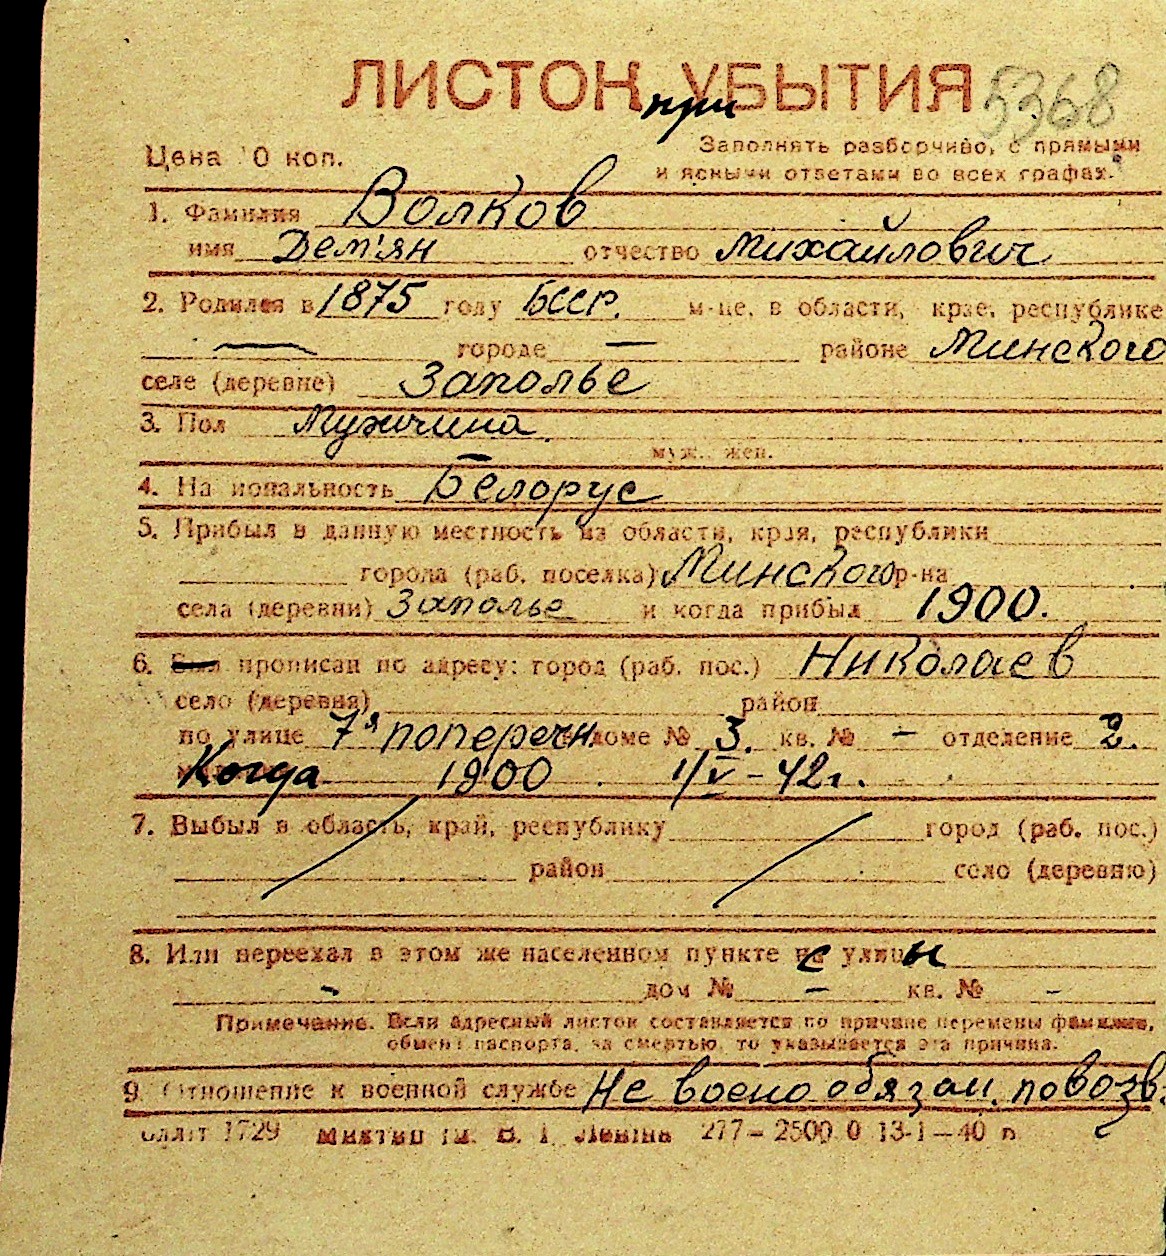 ЛИСТОК при УБЫТИЯ 5368
Цена 10 коп.
Заполнять разборчиво, с прямыми
и ясными ответами во всех графах.
1. Фамилия Волков
имя Дем'ян отчество Михайлович
2. Родился в 1875 году БССР. м-це, в области, крае, республике
— городе — районе Минского
селе (деревне) Заполье
3. Пол Мужчина
муж., жен.
4. Национальность Белорус
5. Прибыл в данную местность из области, края, республики
города (раб. поселка) Минского р-на
села (деревни) Заполье и когда прибыл 1900.
6. Был прописан по адресу: город (раб. пос.) Николаев
село (деревня) район
по улице 7я поперечн. доме № 3. кв. № - отделение 2.
Когда 1900 1/V-42г.
7. Выбыл в область, край, республику город (раб. пос.)
район село (деревню)
8. Или переехал в этом же населенном пункте с улицы
- дом № - кв. № -
Примечание. Если адресный листок составляется по причине перемены фамилии,
обмена паспорта, за смертью, то указывается эта причина.
9. Отношение к военной службе Не воено обязан. по возв.
1729 им. В. І. Леніна 277-2500.0 13-1-40 п